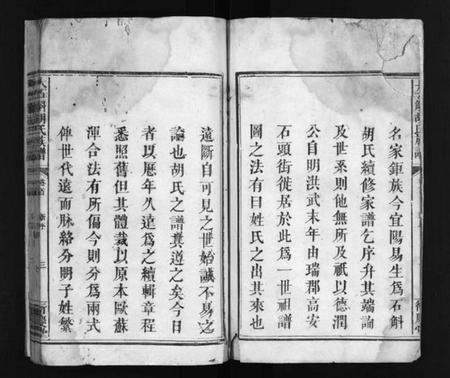 名家鉅族今宜陽易生為石斛
胡氏續修家譜乞序弁其端論
及世系則他無所及祇以德潤
公自明洪武末年由瑞郡高安
石頭街徙居於此為一世祖譜
圖之法有曰姓氏之出其來也
遠斷自可見之世始誠不易之
論也胡氏之譜其道之矣今日
者以歷年久遠為之續輯章程
悉照舊但其體裁以原本歐蘇
渾合法有所偏今則分為兩式
俾世代遠而脉絡分明子姓繁
胡氏
三